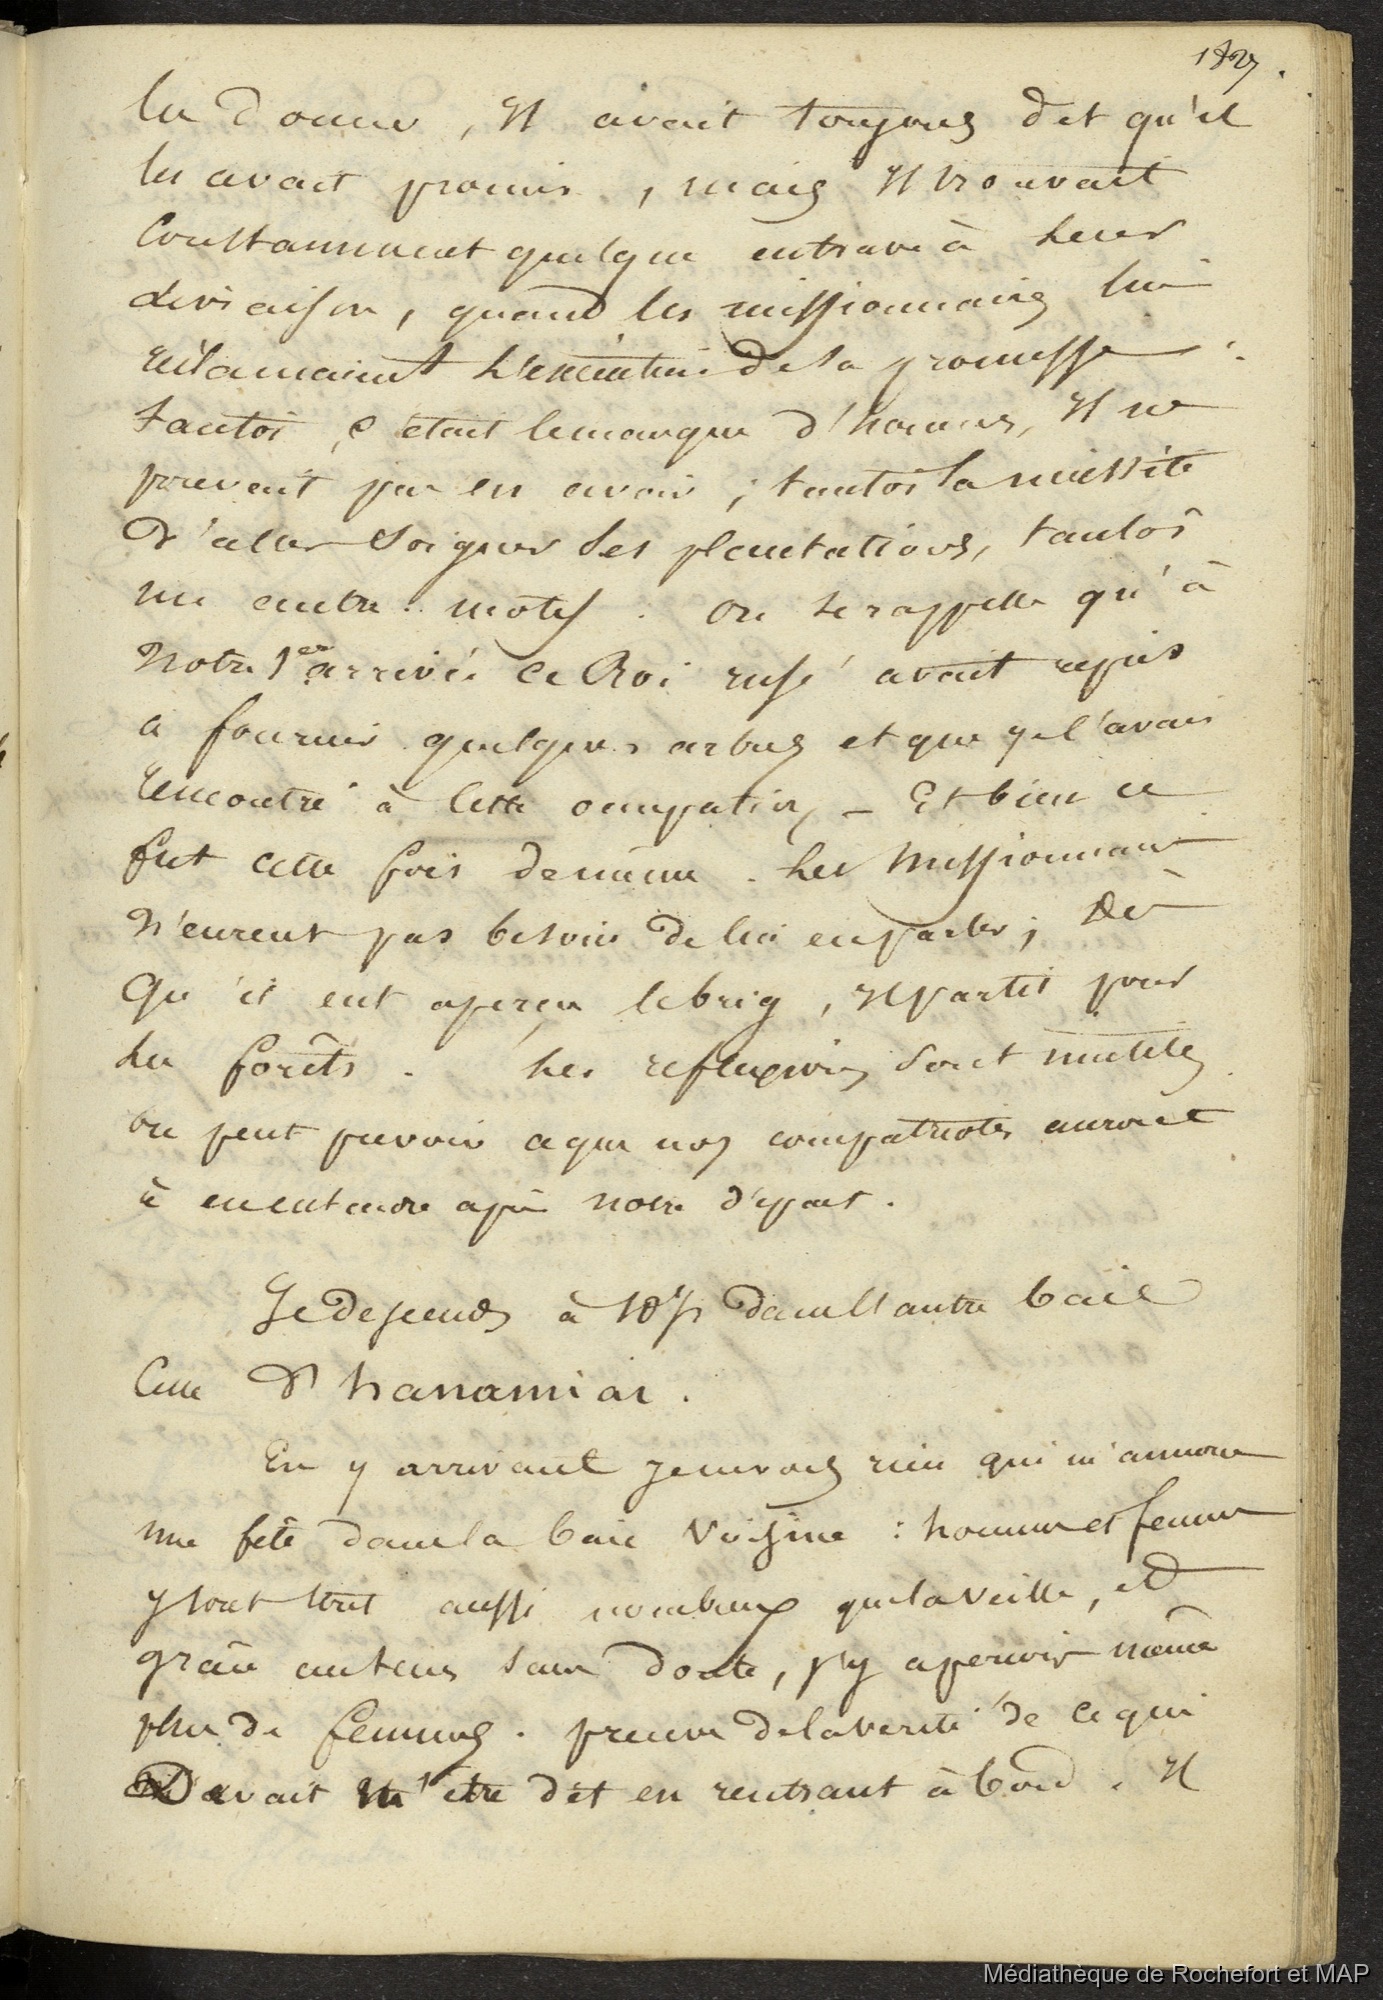 1827.
les donner, Il avait toujours dit qu'il
les avait promis, mais Il trouvait
constamment quelque entrave à leur
livraison, quand les missionnaires lui
réclamaient l'exécution de sa promesse :
tantôt c'était le manque d'hommes, Il ne
pouvait pas en avoir ; tantôt la nécessité
d'aller soigner ses plantations, tantôt
un autre motif. On se rappelle qu'à
notre 1er arrivée ce Roi rusé avait
à fournir quelques arbres et que je l'avais
rencontré à cette occupation – Et bien ce
fut cette fois de même. Les Missionnaires
n'eurent pas besoin de lui en parler ; Dès
qu'il eut aperçu le brig, Il partit pour
les forêts. Les réflexions sont inutiles
on peut prévoir ce que nos compatriotes auront
à en entendre après notre départ.
Je descends à 10h dans l'autre baie
celle d'hanamiai.
En y arrivant je ne vois rien qui m'annonce
une fête dans la baie voisine : hommes et femmes
y sont tout aussi nombreux que la veille, et
grâce au tems sans doute, j'y aperçois même
plus de femmes. preuve de la vérité de ce qui
avait m'être dit en rentrant à bord. Il
Médiathèque de Rochefort et MAP